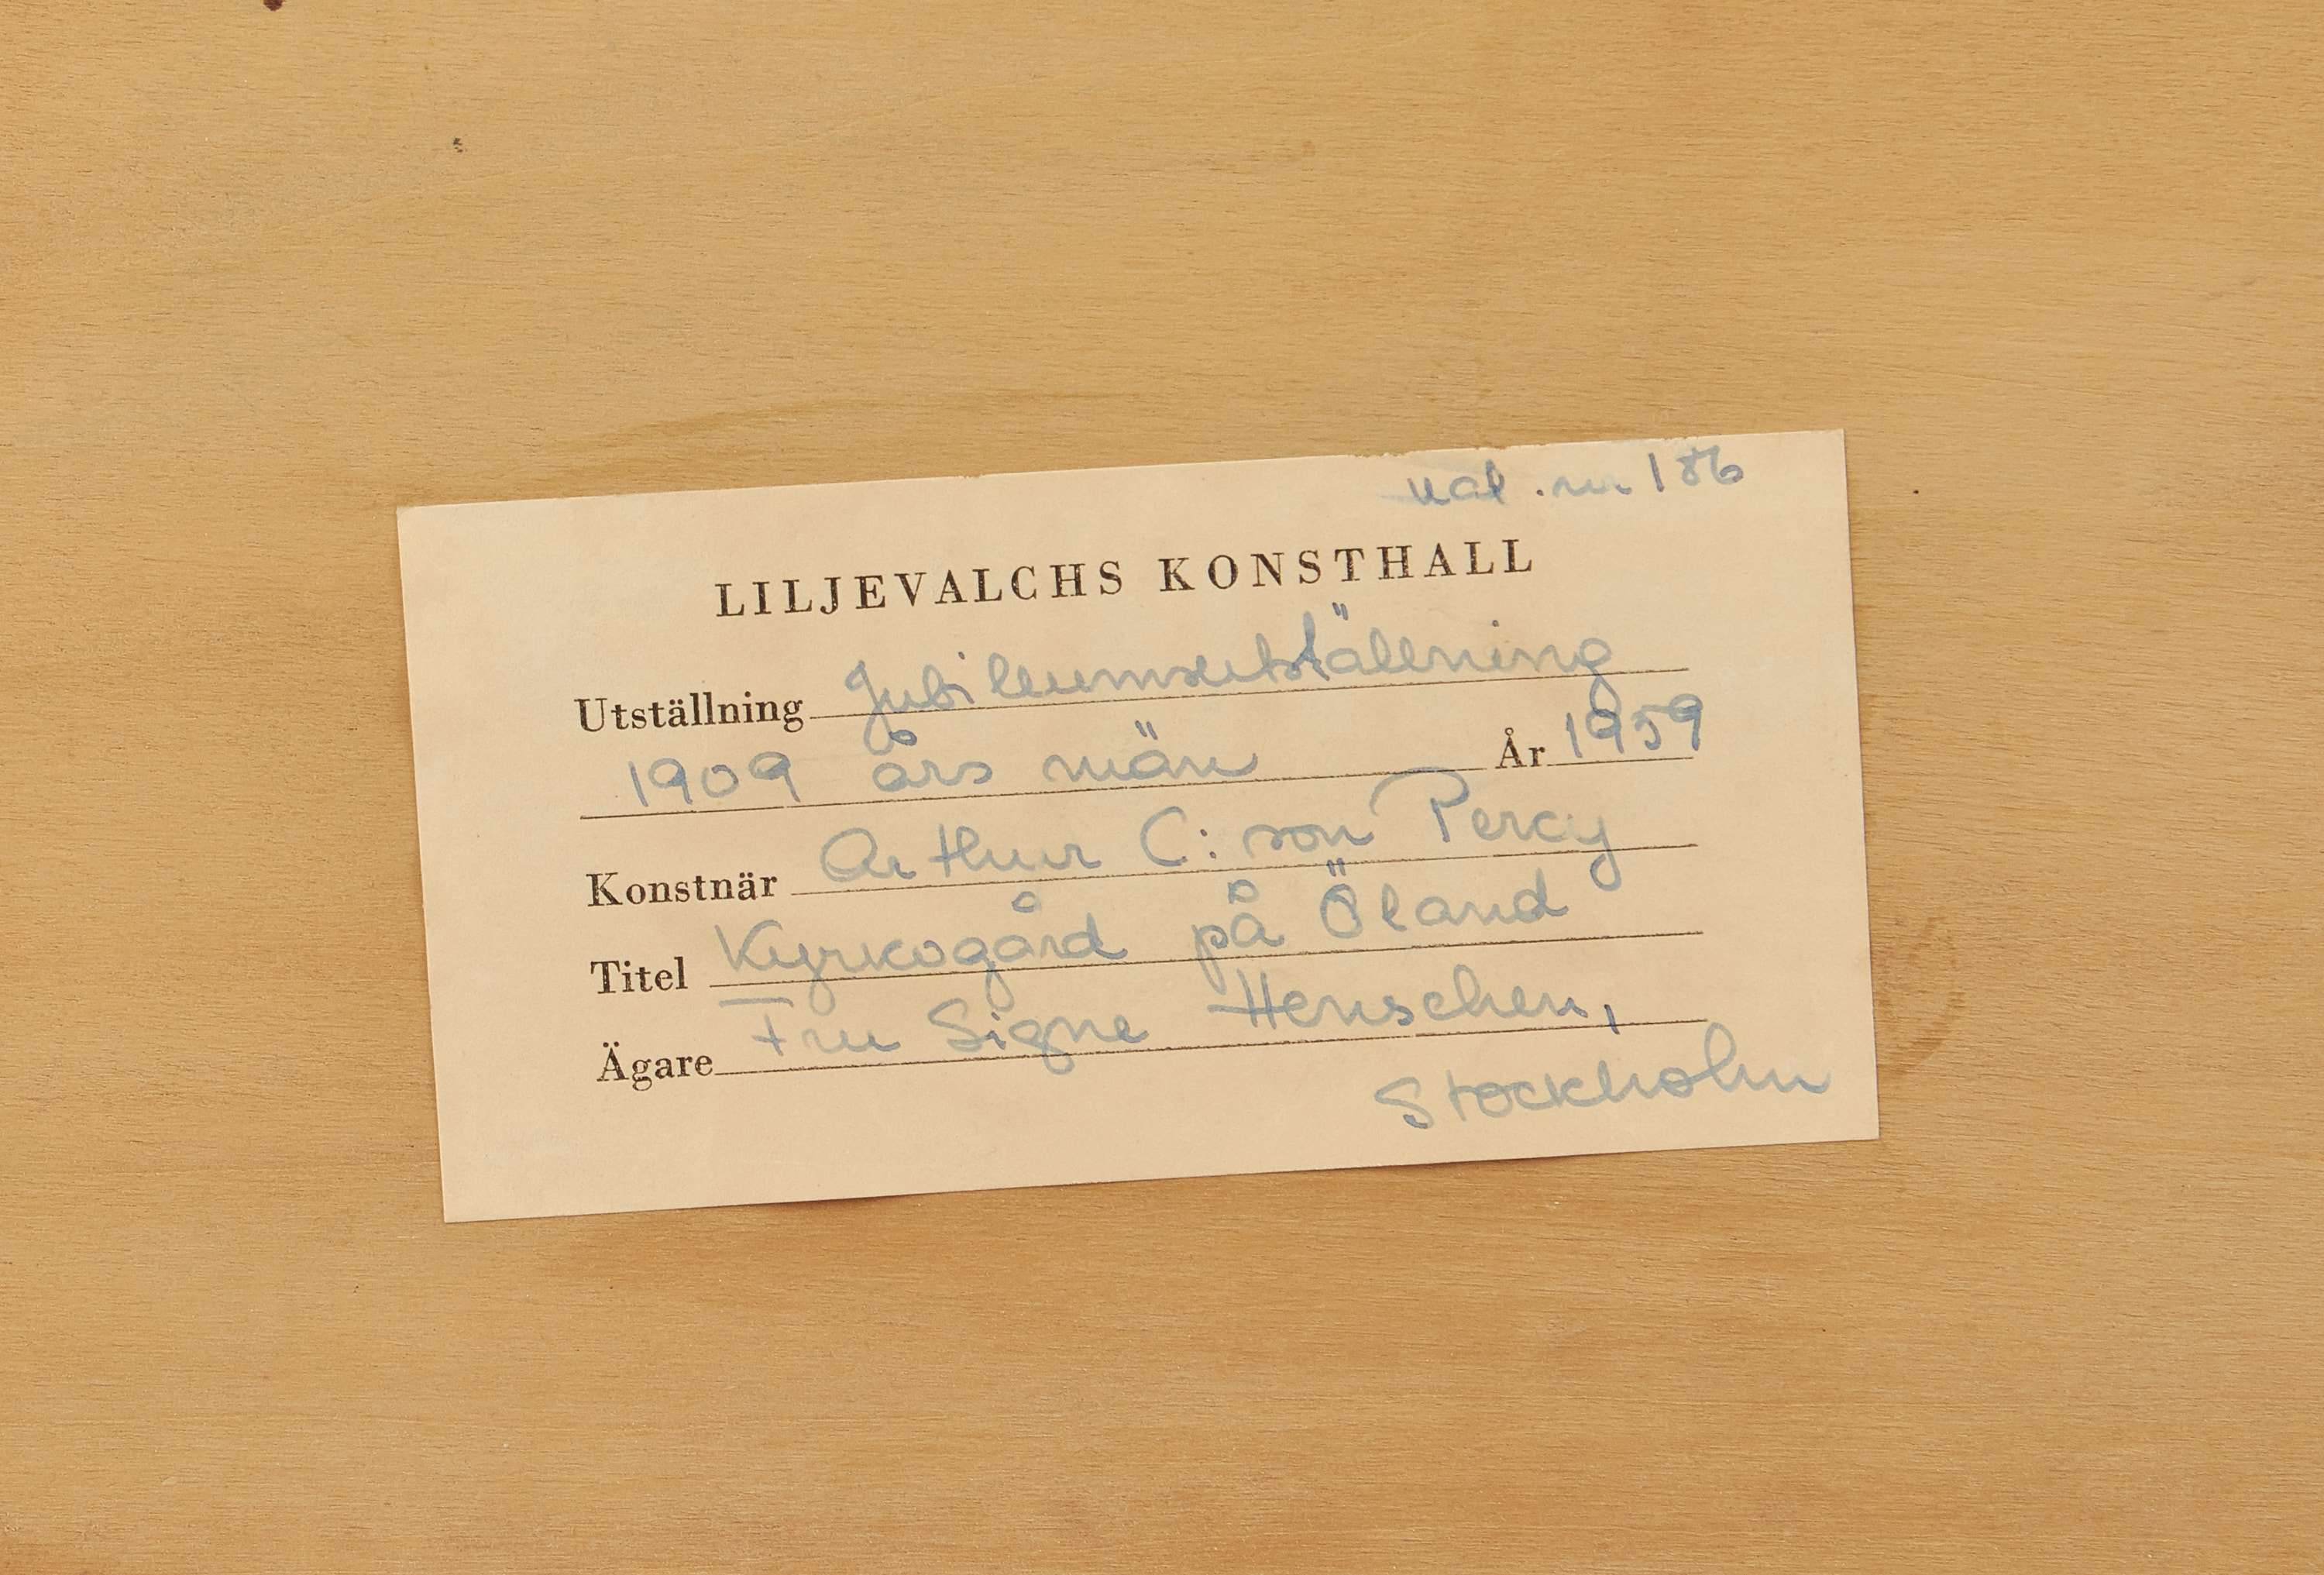 kat. nr 186
LILJEVALCHS KONSTHALL
Utställning Jubileumsutställning
1909 års män År 1959
Konstnär Arthur C:son Percy
Titel Kyrkogård på Öland
Ägare Fru Signe Henschen,
Stockholm